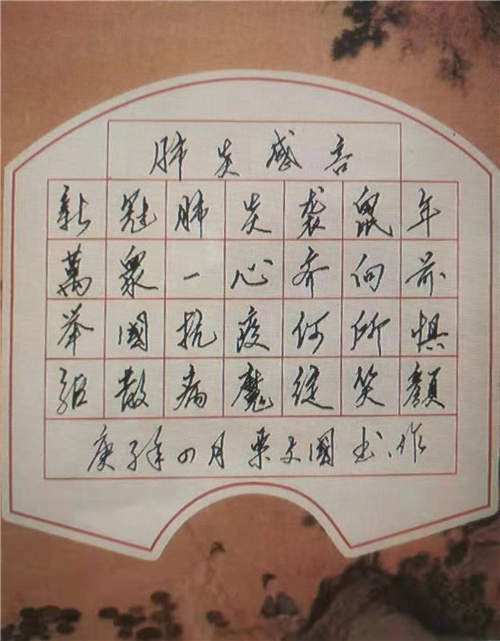 肺炎感言
新冠肺炎袭鼠年
萬衆一心齐向前
举國抗疫何所惧
驱散病魔绽笑颜
庚子年四月栗文國书作